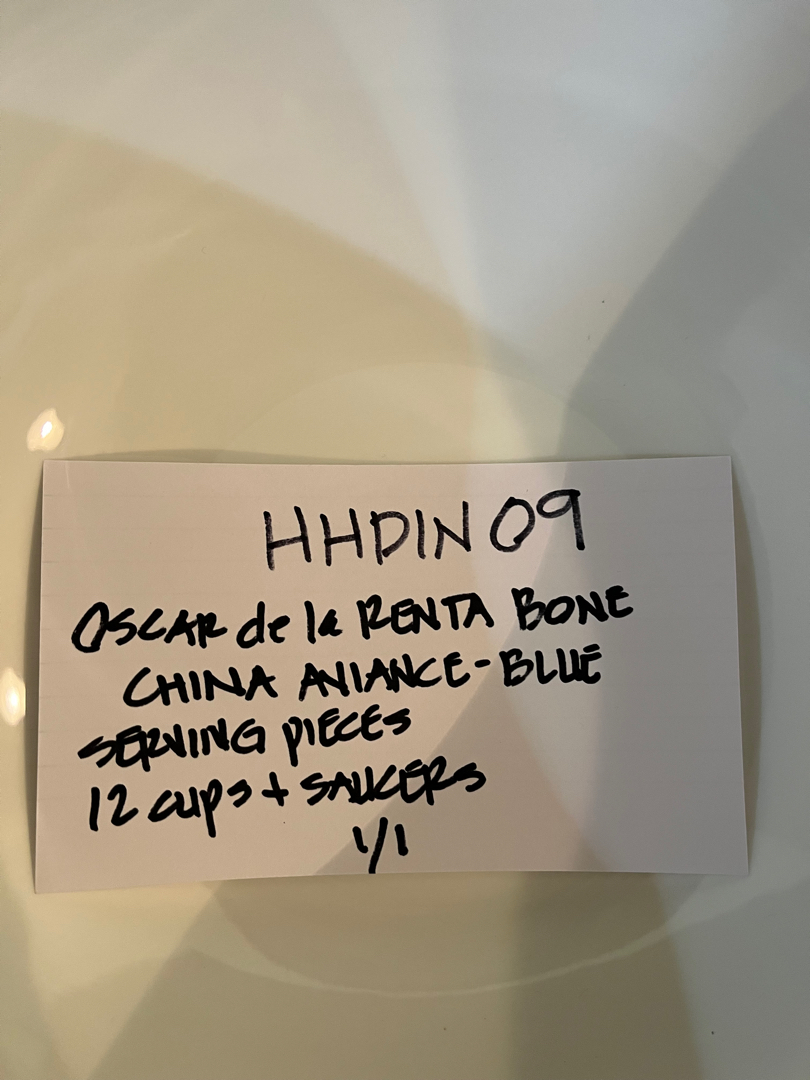 HHDIN09
OSCAR de la RENTA BONE
CHINA AVIANCE-BLUE
SERVING PIECES
12 cups + SAUCERS
1/1